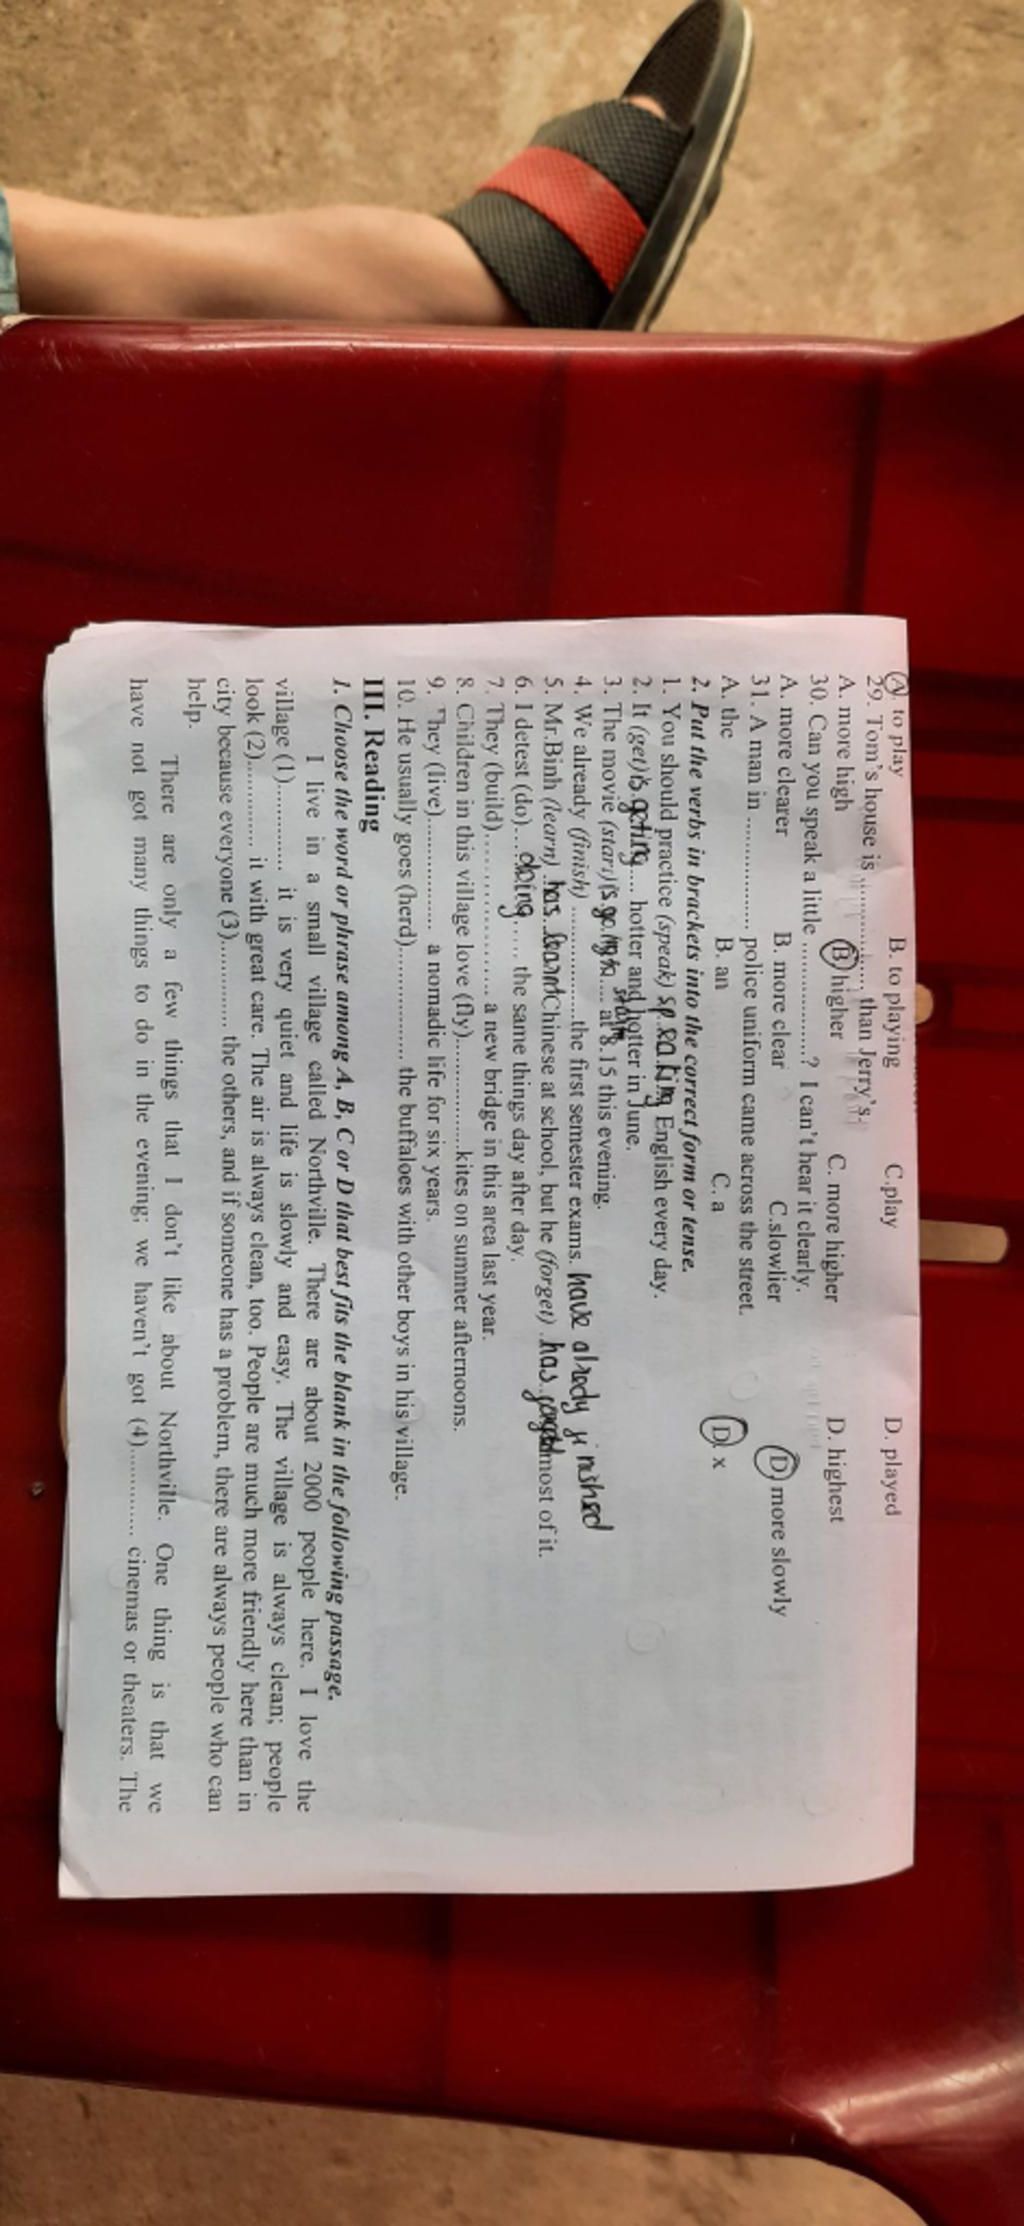 A to play B. to playing C.play D. played
29. Tom's house is ............... than Jerry's.
A. more high B higher C. more higher D. highest
30. Can you speak a little ...............? I can't hear it clearly.
A. more clearer B. more clear C.slowlier D more slowly
31. A man in ............... police uniform came across the street.
A. the B. an C. a D. x
2. Put the verbs in brackets into the correct form or tense.
1. You should practice (speak) speaking English every day.
2. It (get) is geting.... hotter and hotter in June.
3. The movie (start) is going to start.... at 8.15 this evening.
4. We already (finish) ...............the first semester exams. have alredy finished
5. Mr.Binh (learn) has learnt Chinese at school, but he (forget) has most of it.
6. I detest (do)....doing.... the same things day after day.
7. They (build)............... a new bridge in this area last year.
8. Children in this village love (fly)...............kites on summer afternoons.
9. They (live)............... a nomadic life for six years.
10. He usually goes (herd)............... the buffaloes with other boys in his village.
III. Reading
1. Choose the word or phrase among A, B, C or D that best fits the blank in the following passage.
I live in a small village called Northville. There are about 2000 people here. I love the
village (1)............ it is very quiet and life is slowly and easy. The village is always clean; people
look (2)............ it with great care. The air is always clean, too. People are much more friendly here than in
city because everyone (3)............ the others, and if someone has a problem, there are always people who can
help.
There are only a few things that I don't like about Northville. One thing is that we
have not got many things to do in the evening; we haven't got (4)............ cinemas or theaters. The